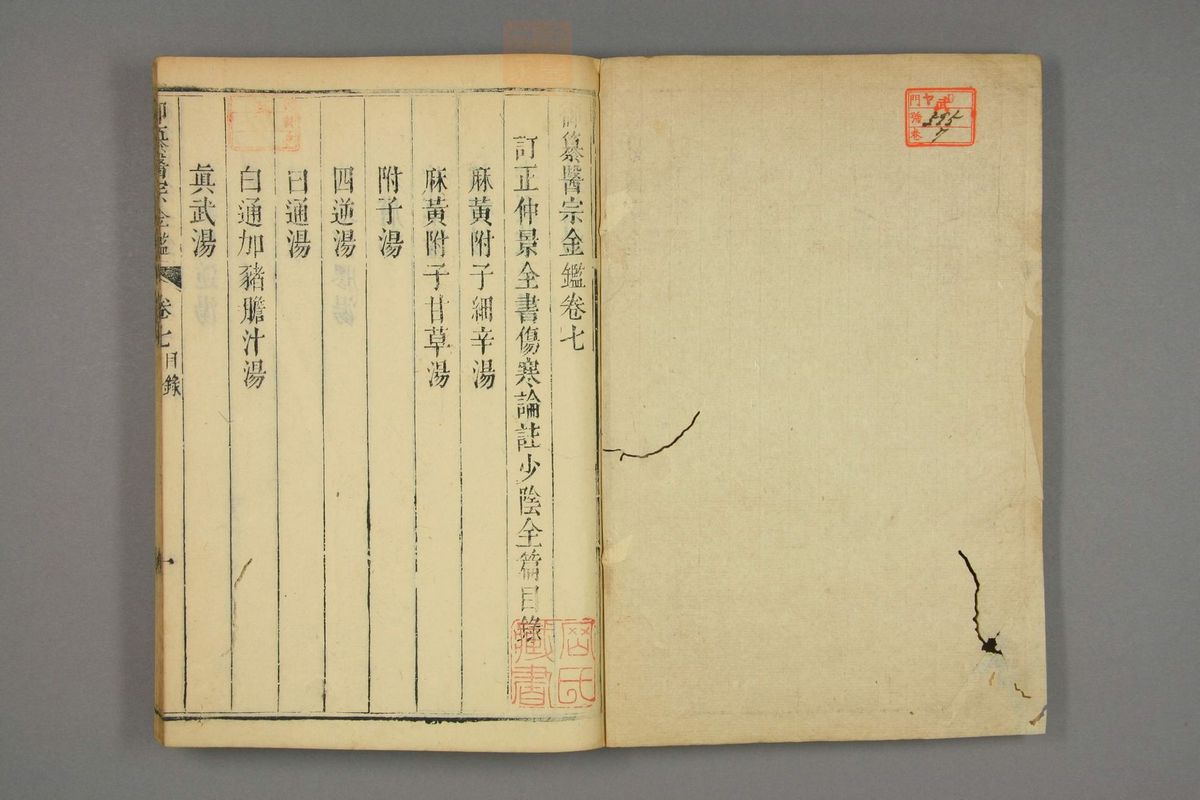 門 ヤ
武
号 395
巻 7
御纂醫宗金鑑卷七
訂正仲景全書傷寒論註少陰全篇目錄
麻黃附子細辛湯
麻黃附子甘草湯
附子湯
四逆湯
白通湯
白通加豬膽汁湯
眞武湯
御纂醫宗金鑑 卷七目錄 一
藏書